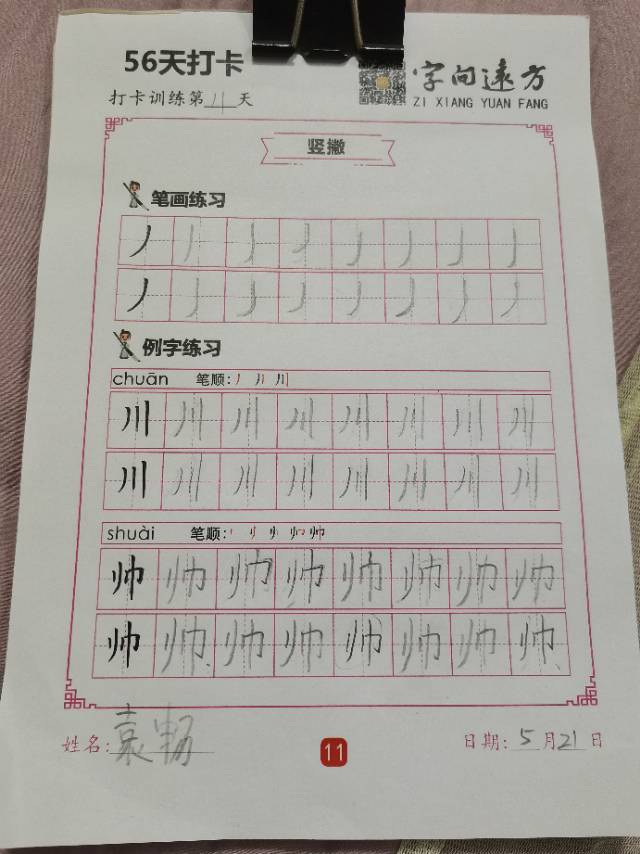 56天打卡
字向远方
打卡训练第11天
ZI XIANG YUAN FANG
竖撇
笔画练习
丿丿丿丿丿丿丿丿
丿丿丿丿丿丿丿丿
例字练习
chuān 笔顺:
川川川川川川川川
川川川川川川川川
shuài 笔顺:
帅帅帅帅帅帅帅帅
帅帅帅帅帅帅帅帅
姓名:袁畅
11
日期:5月21日